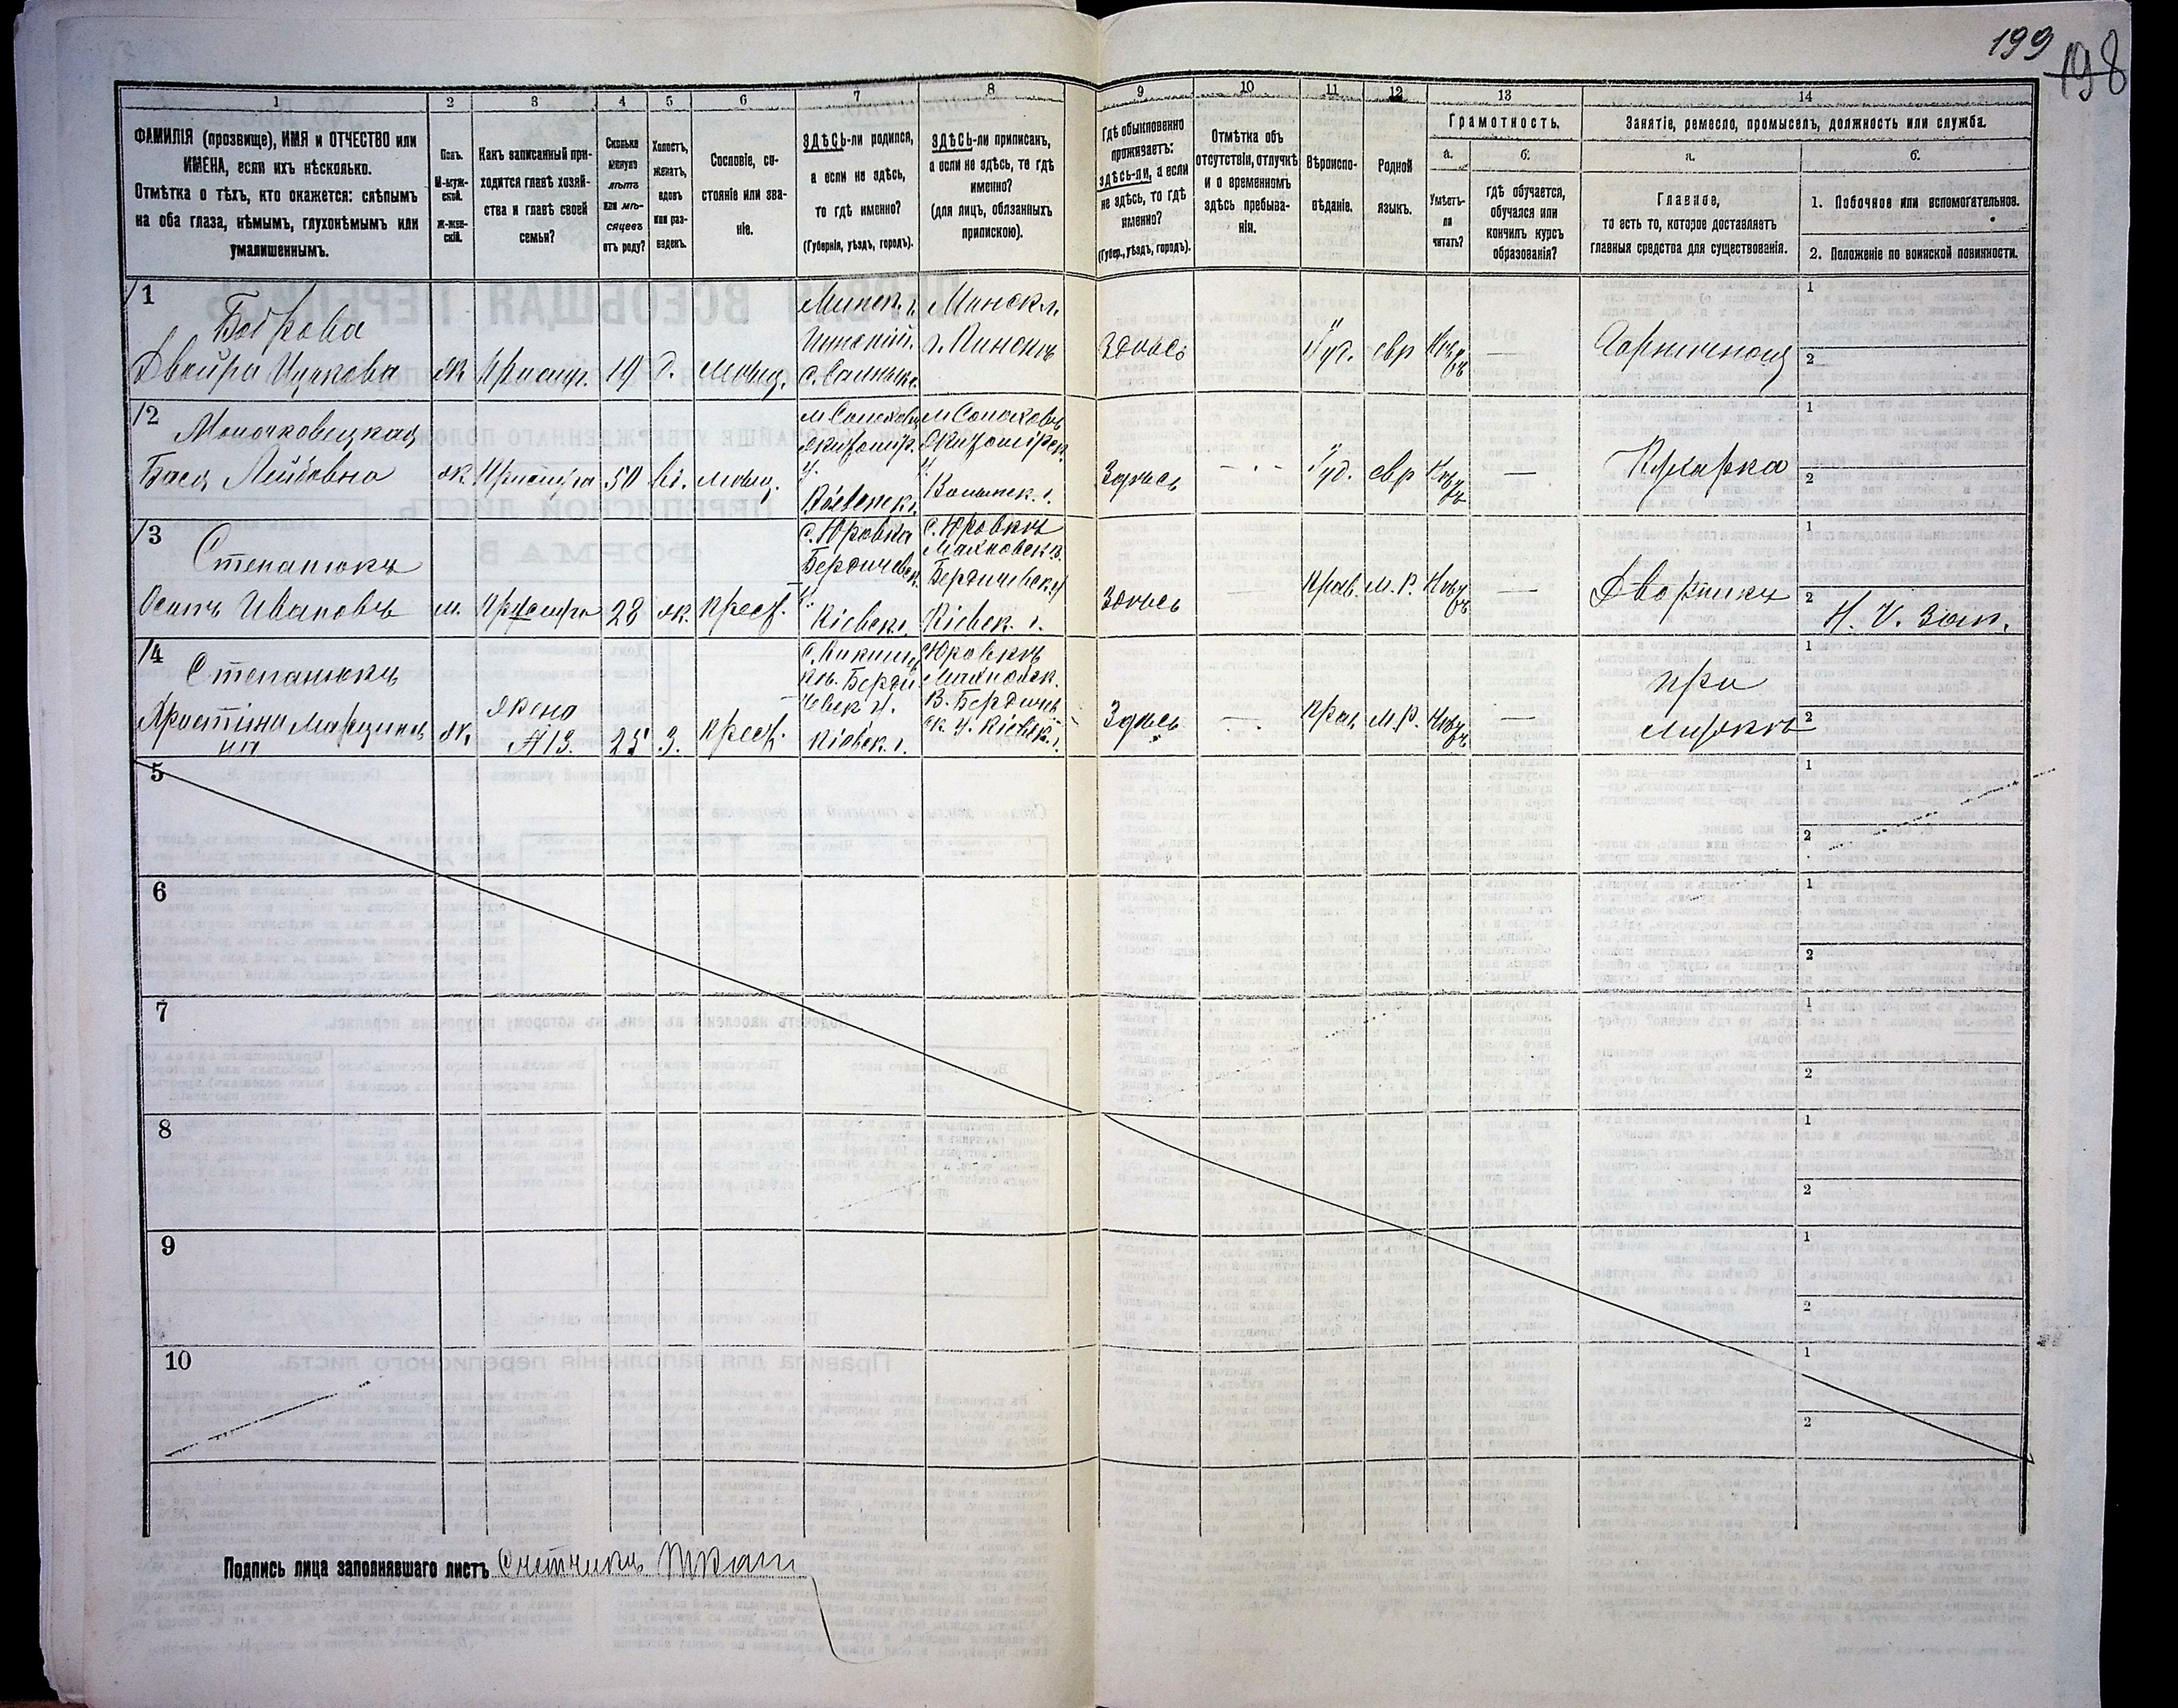 199
198
1 2 3 4 5 6 7 8 9 10 11 12 13 14
ФАМИЛІЯ (прозвище), ИМЯ и ОТЧЕСТВО или
ИМЕНА, если ихъ нѣсколько.
Отмѣтка о тѣхъ, кто окажется: слѣпымъ
на оба глаза, нѣмымъ, глухонѣмымъ или
умалишеннымъ.
Полъ.
М-муж-
ской.
Ж-жен-
скій.
Какъ записанный при-
ходится главѣ хозяй-
ства и главѣ своей
семьи?
Сколько
минуло
лѣтъ
или мѣ-
сяцевъ
отъ роду?
Холостъ,
женатъ,
вдовъ
или раз-
веденъ.
Сословіе, со-
стояніе или зва-
ніе.
ЗДѢСЬ-ли родился,
а если не здѣсь,
то гдѣ именно?
(Губернія, уѣздъ, городъ).
ЗДѢСЬ-ли приписанъ,
а если не здѣсь, то гдѣ
именно?
(для лицъ, обязанныхъ
припискою).
Гдѣ обыкновенно
проживаетъ:
здѣсь-ли, а если
не здѣсь, то гдѣ
именно?
(Губер., уѣздъ, городъ).
Отмѣтка объ
отсутствіи, отлучкѣ
и о временномъ
здѣсь пребыва-
ніи.
Вѣроиспо-
вѣданіе.
Родной
языкъ.
Грамотность.
а.
Умѣетъ-
ли
читать?
б.
гдѣ обучается,
обучался или
кончилъ курсъ
образованія?
Занятіе, ремесло, промыселъ, должность или служба.
а.
Главное,
то есть то, которое доставляетъ
главныя средства для существованія.
б.
1. Побочное или вспомогательное.
2. Положеніе по воинской повинности.
1
Боброва
Двейра Ицкова ж 19 д. мѣщ.
Минск. г.
Пинскій.
Минск. г.
г. Пинскъ
Здѣсь Іуд. евр — Горничная
1
2
2
Бася Лейбовна ж Прислуга 50 вд. мѣщ.
Житомір.
у.
Волынск. г.
Житомірск.
у.
Волынск. г.
Здѣсь — Іуд. евр — Кухарка
1
2
3
Степанюкъ
Осипъ Ивановъ м. Прислуга 28 ж. крест.
с. Юровка
Бердичевск.
у.
Кіевск. г.
с. Юровка
Махновск. в.
Бердичевск. у
Кіевск. г.
Здѣсь Прав. М. Р. — Дворникъ
1
2
4
Степанюкъ
Христина ж. жена № 13. 25 з. крест.
Берди-
чевск. у.
Кіевск. г.
Юровка
Махновск.
в. Бердичев
ск. у. Кіевск. г.
Здѣсь — Прав М. Р. — при
мужѣ
1
2
5
1
2
6
1
2
7
1
2
8
1
2
9
1
2
10
1
2
Подпись лица заполнявшаго листъ Счетчикъ